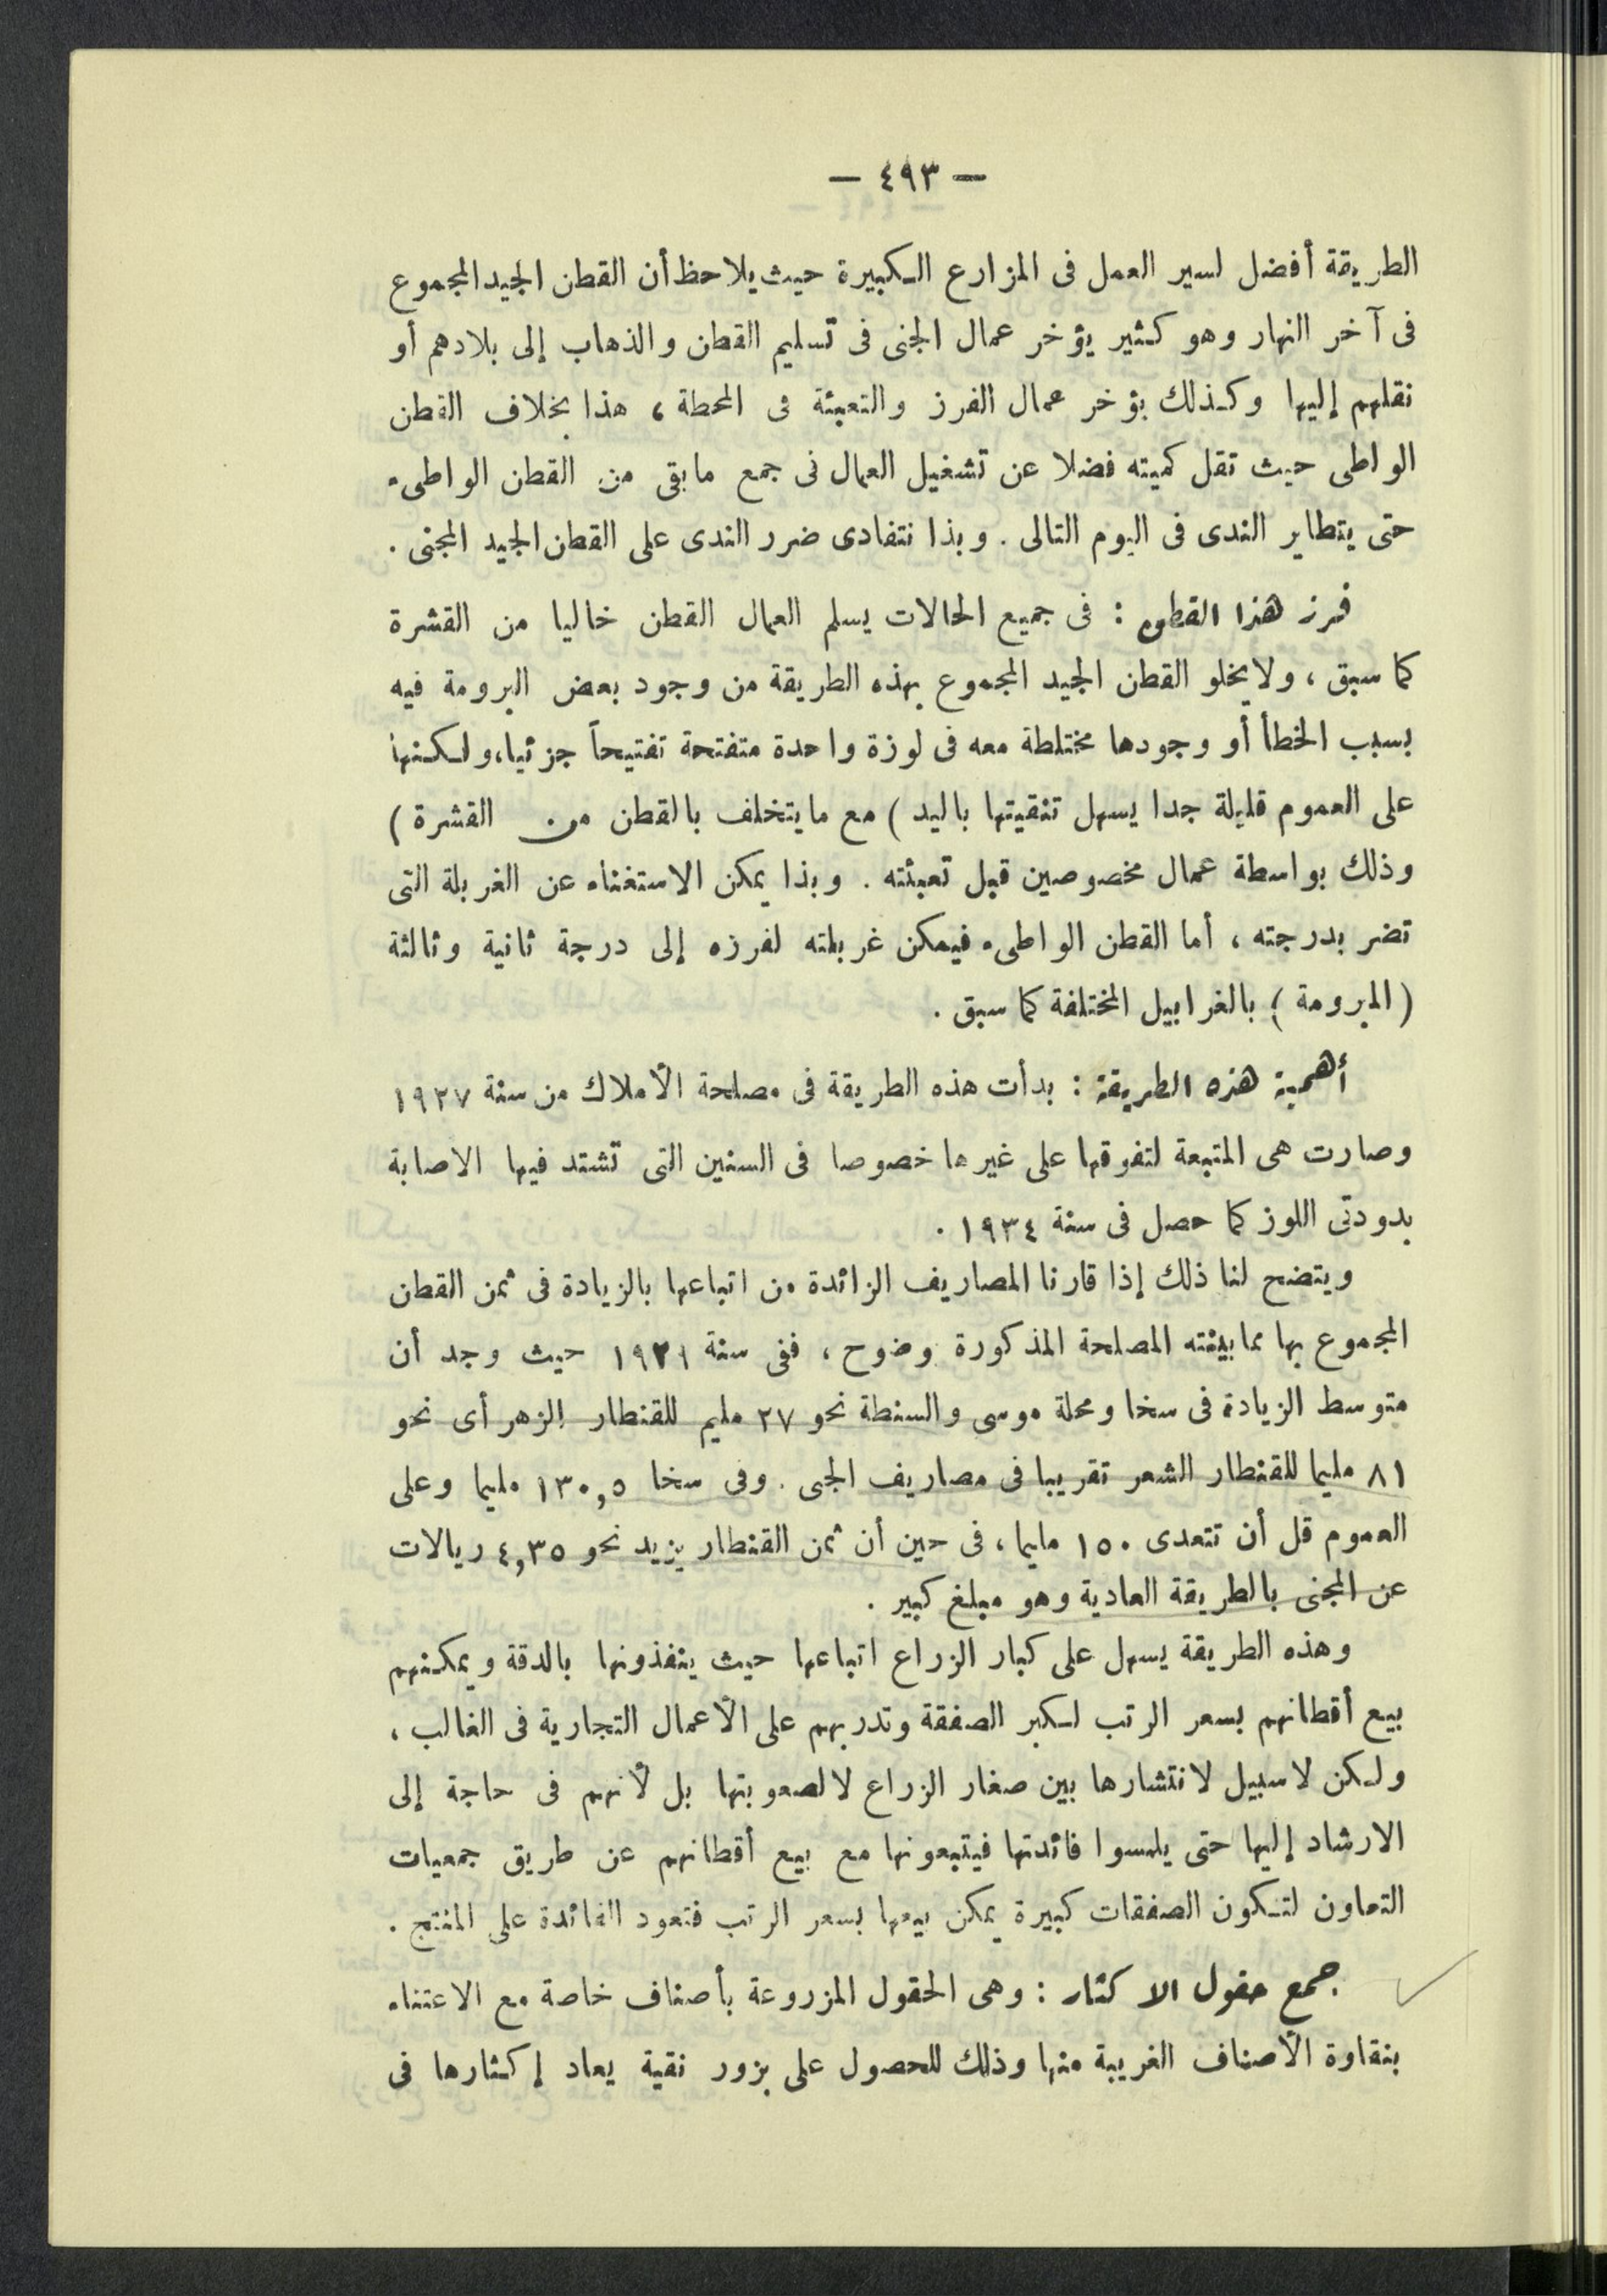 — ٤٩٣ —
الطريقة أفضل لسير العمل فى المزارع الكبيرة حيث يلاحظ أن القطن الجيد المجموع
فى آخر النهار وهو كثير يؤخر عمال الجنى فى تسليم القطن والذهاب إلى بلادهم أو
نقلهم إليها وكذلك يؤخر عمال الفرز والتعبئة فى المحطة ، هذا بخلاف القطن
الواطى حيث تقل كميته فضلا عن تشغيل العمال فى جمع مابقى من القطن الواطىء
حتى يتطاير الندى فى اليوم التالى . وبذا نتفادى ضرر الندى على القطن الجيد المجنى .
فرز هذا القطن : فى جميع الحالات يسلم العمال القطن خاليا من القشرة
كما سبق ، ولايخلو القطن الجيد المجموع بهذه الطريقة من وجود بعض البرومة فيه
بسبب الخطأ أو وجودها مختلطة معه فى لوزة واحدة متفتحة تفتيحاً جزئيا، ولكنها
على العموم قليلة جدا يسهل تنقيتها باليد ) مع مايتخلف بالقطن من القشرة )
وذلك بواسطة عمال مخصوصين قبل تعبئته . وبذا يمكن الاستغناء عن الغربلة التى
تضر بدرجته ، أما القطن الواطىء فيمكن غربلته لفرزه إلى درجة ثانية وثالثة
( المبرومة ) بالغرابيل المختلفة كما سبق .
أهمية هذه الطريقة : بدأت هذه الطريقة فى مصلحة الأملاك من سنة ١٩٢٧
وصارت هى المتبعة لتفوقها على غيرها خصوصا فى السنين التى تشتد فيها الاصابة
بدودتى اللوز كما حصل فى سنة ١٩٣٤ .
ويتضح لنا ذلك إذا قارنا المصاريف الزائدة من اتباعها بالزيادة فى ثمن القطن
المجموع بها مما بينته المصلحة المذكورة بوضوح ، ففى سنة ١٩٣١ حيث وجد أن
متوسط الزيادة فى سخا ومحلة موسى والسنطة نحو ٢٧ مليم للقنطار الزهر أى نحو
٨١ مليما للقنطار الشعر تقريبا فى مصاريف الجنى . وفى سخا ١٣٠,٥ مليما وعلى
العموم قل أن تتعدى ١٥٠ مليما ، فى حين أن ثمن القنطار يزيد نحو ٤,٣٥ ريالات
عن المجنى بالطريقة العادية وهو مبلغ كبير .
وهذه الطريقة يسهل على كبار الزراع اتباعها حيث ينفذونها بالدقة ويمكنهم
بيع أقطانهم بسعر الرتب لكبر الصفقة وتدربهم على الأعمال التجارية فى الغالب ،
ولكن لاسبيل لانتشارها بين صغار الزراع لا لصعوبتها بل لأنهم فى حاجة إلى
الارشاد إليها حتى يلمسوا فائدتها فيتبعونها مع بيع أقطانهم عن طريق جمعيات
التعاون لتكون الصفقات كبيرة يمكن بيعها بسعر الرتب فتعود الفائدة على المنتج .
جمع حقول الاكثار : وهى الحقول المزروعة بأصناف خاصة مع الاعتناء
بنقاوة الأصناف الغريبة منها وذلك للحصول على بزور نقية يعاد إكثارها فى